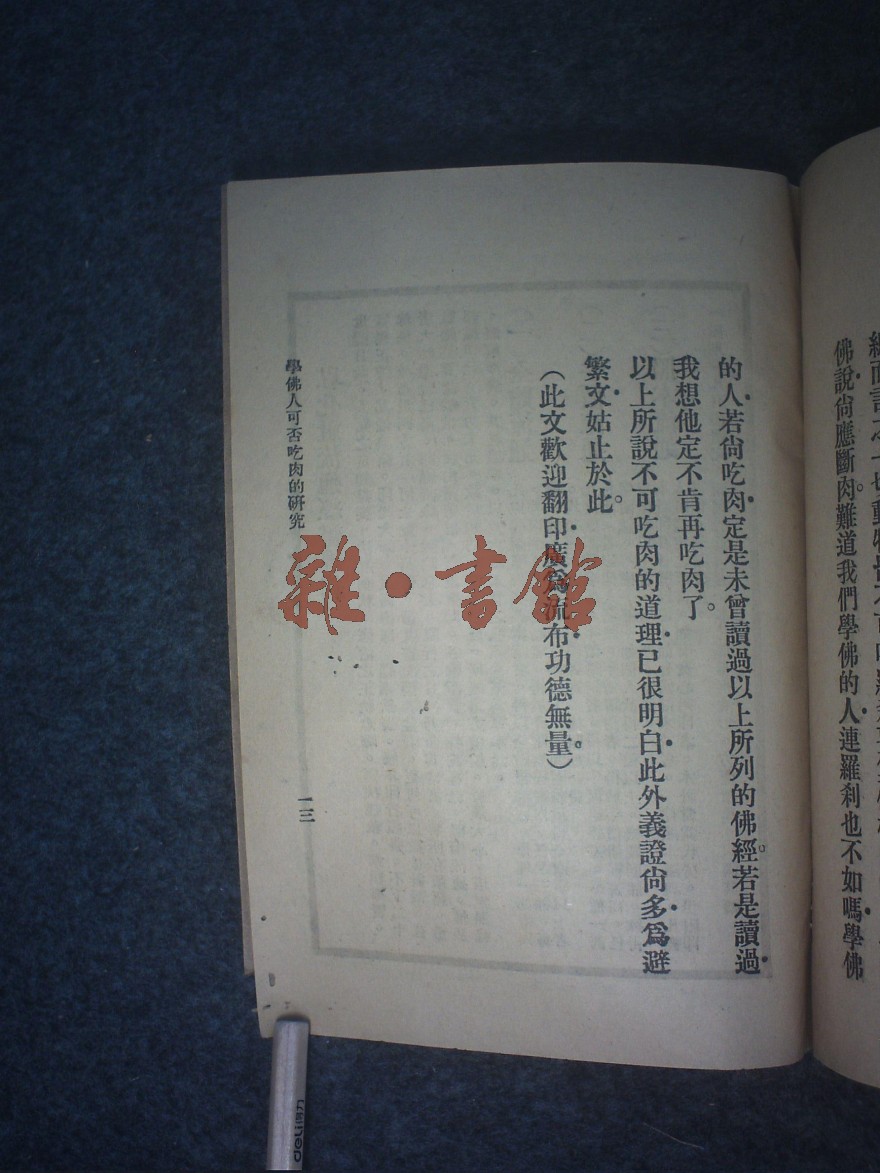 佛說尙應斷肉。難道我們學佛的人連羅刹也不如嗎學佛
的人若尙吃肉定是未曾讀過以上所列的佛經。若是讀過
我想他定不肯再吃肉了。
以上所說不可吃肉的道理已很明白此外義證尙多爲避
繁文姑止於此。
（此文歡迎翻印廣爲流布功德無量。）
學佛人可否吃肉的硏究
一三
雜·書館
deli得力